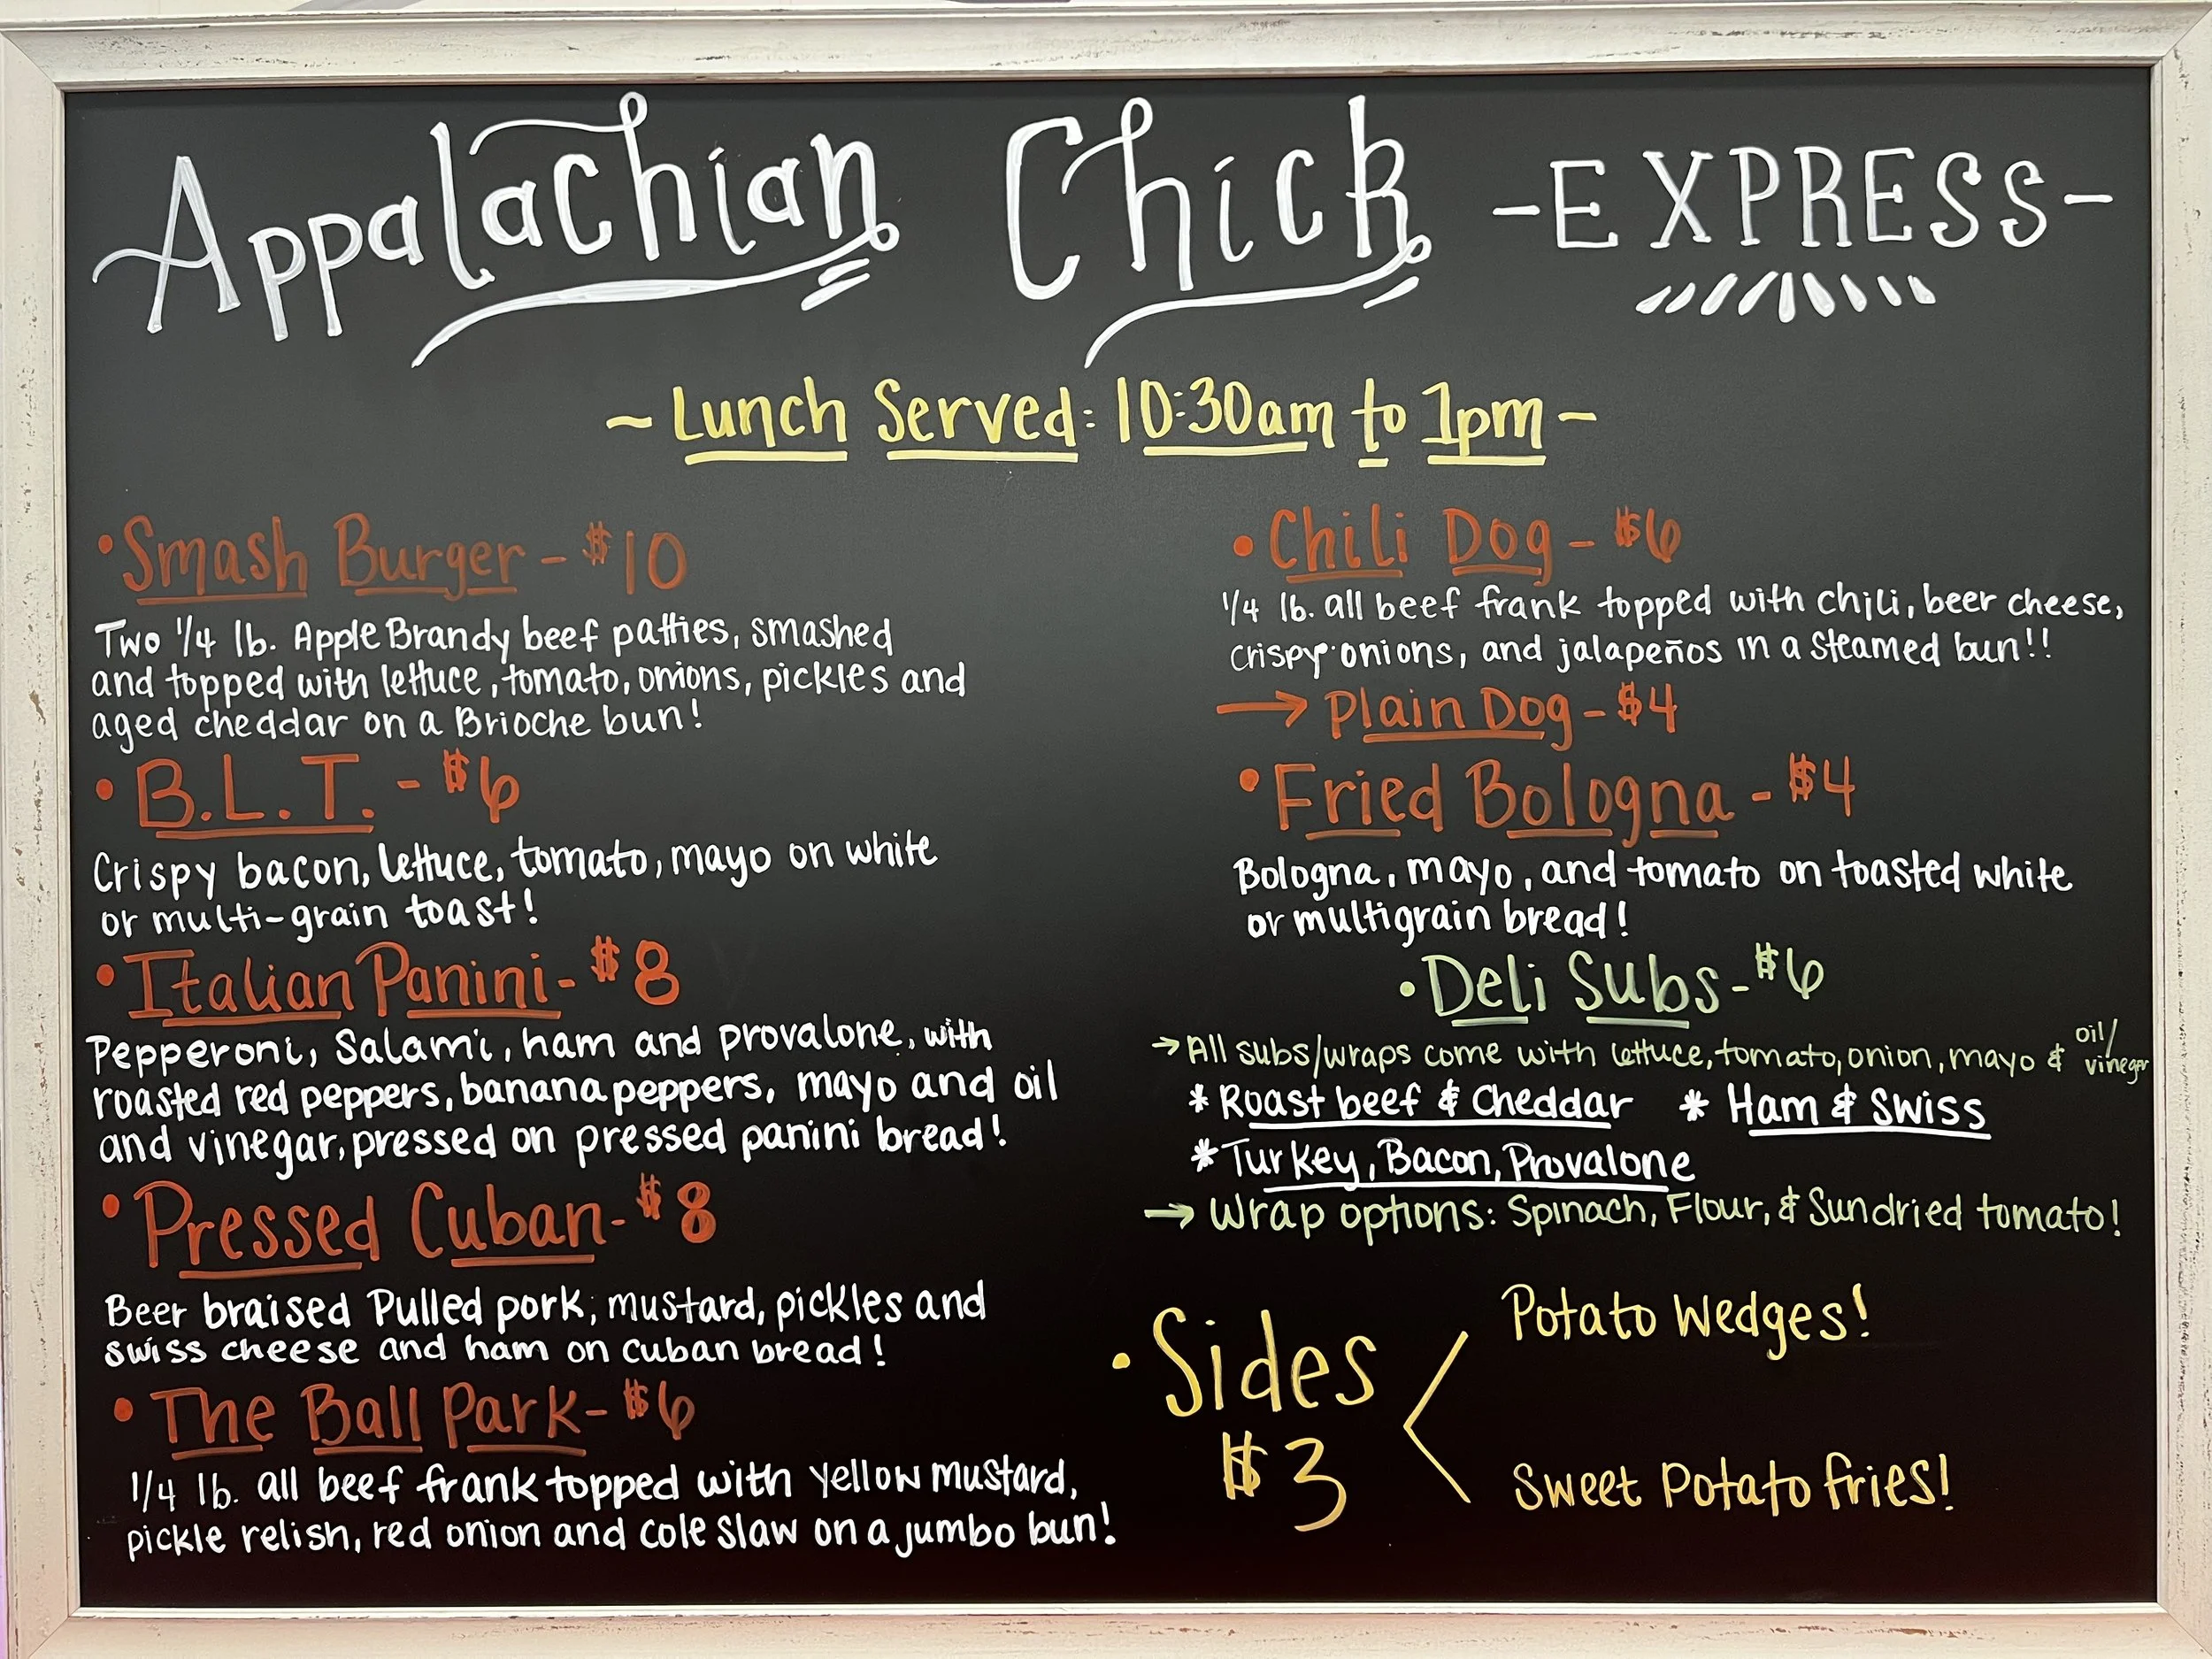 Appalachian Chick -EXPRESS-
~ Lunch Served: 10:30am to 1pm ~
• Smash Burger - $10
Two 1/4 lb. Apple Brandy beef patties, smashed
and topped with lettuce, tomato, onions, pickles and
aged cheddar on a Brioche bun!
• B.L.T. - $6
Crispy bacon, lettuce, tomato, mayo on white
or multi-grain toast!
• Italian Panini - $8
Pepperoni, Salami, ham and provalone, with
roasted red peppers, banana peppers, mayo and oil
and vinegar, pressed on pressed panini bread!
• Pressed Cuban - $8
Beer braised Pulled pork, mustard, pickles and
swiss cheese and ham on cuban bread!
• The Ball Park - $6
1/4 lb. all beef frank topped with yellow mustard,
pickle relish, red onion and cole slaw on a jumbo bun!
• Chili Dog - $6
1/4 lb. all beef frank topped with chili, beer cheese,
crispy onions, and jalapeños in a steamed bun!!
→ Plain Dog - $4
• Fried Bologna - $4
Bologna, mayo, and tomato on toasted white
or multigrain bread!
• Deli Subs - $6
→ All subs/wraps come with lettuce, tomato, onion, mayo & oil/vinegar
* Roast beef & Cheddar * Ham & Swiss
* Turkey, Bacon, Provalone
→ Wrap options: Spinach, Flour, & Sundried tomato!
• Sides
$3
Potato Wedges!
Sweet Potato fries!